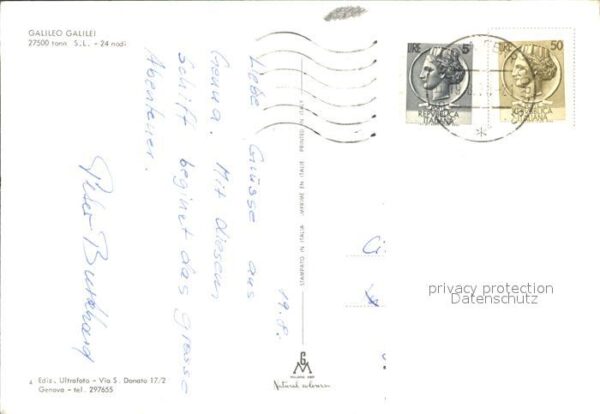 GALILEO GALILEI
27500 tonn S.L. - 24 nodi
19.8.
Liebe Grüsse aus
Genua. Mit diesem
Schiff beginet das grosse
Abenteuer.
Peter Burkhard
STAMPATO IN ITALIA IMPRIMÉ EN ITALIE PRINTED IN ITALY
LIRE 5
REPUBBLICA
ITALIANA
LIRE 50
REPUBBLICA
ITALIANA
privacy protection
Datenschutz
4 Ediz. Ultrafoto - Via S. Donato 17/2
Genova - tel. 297655
GM